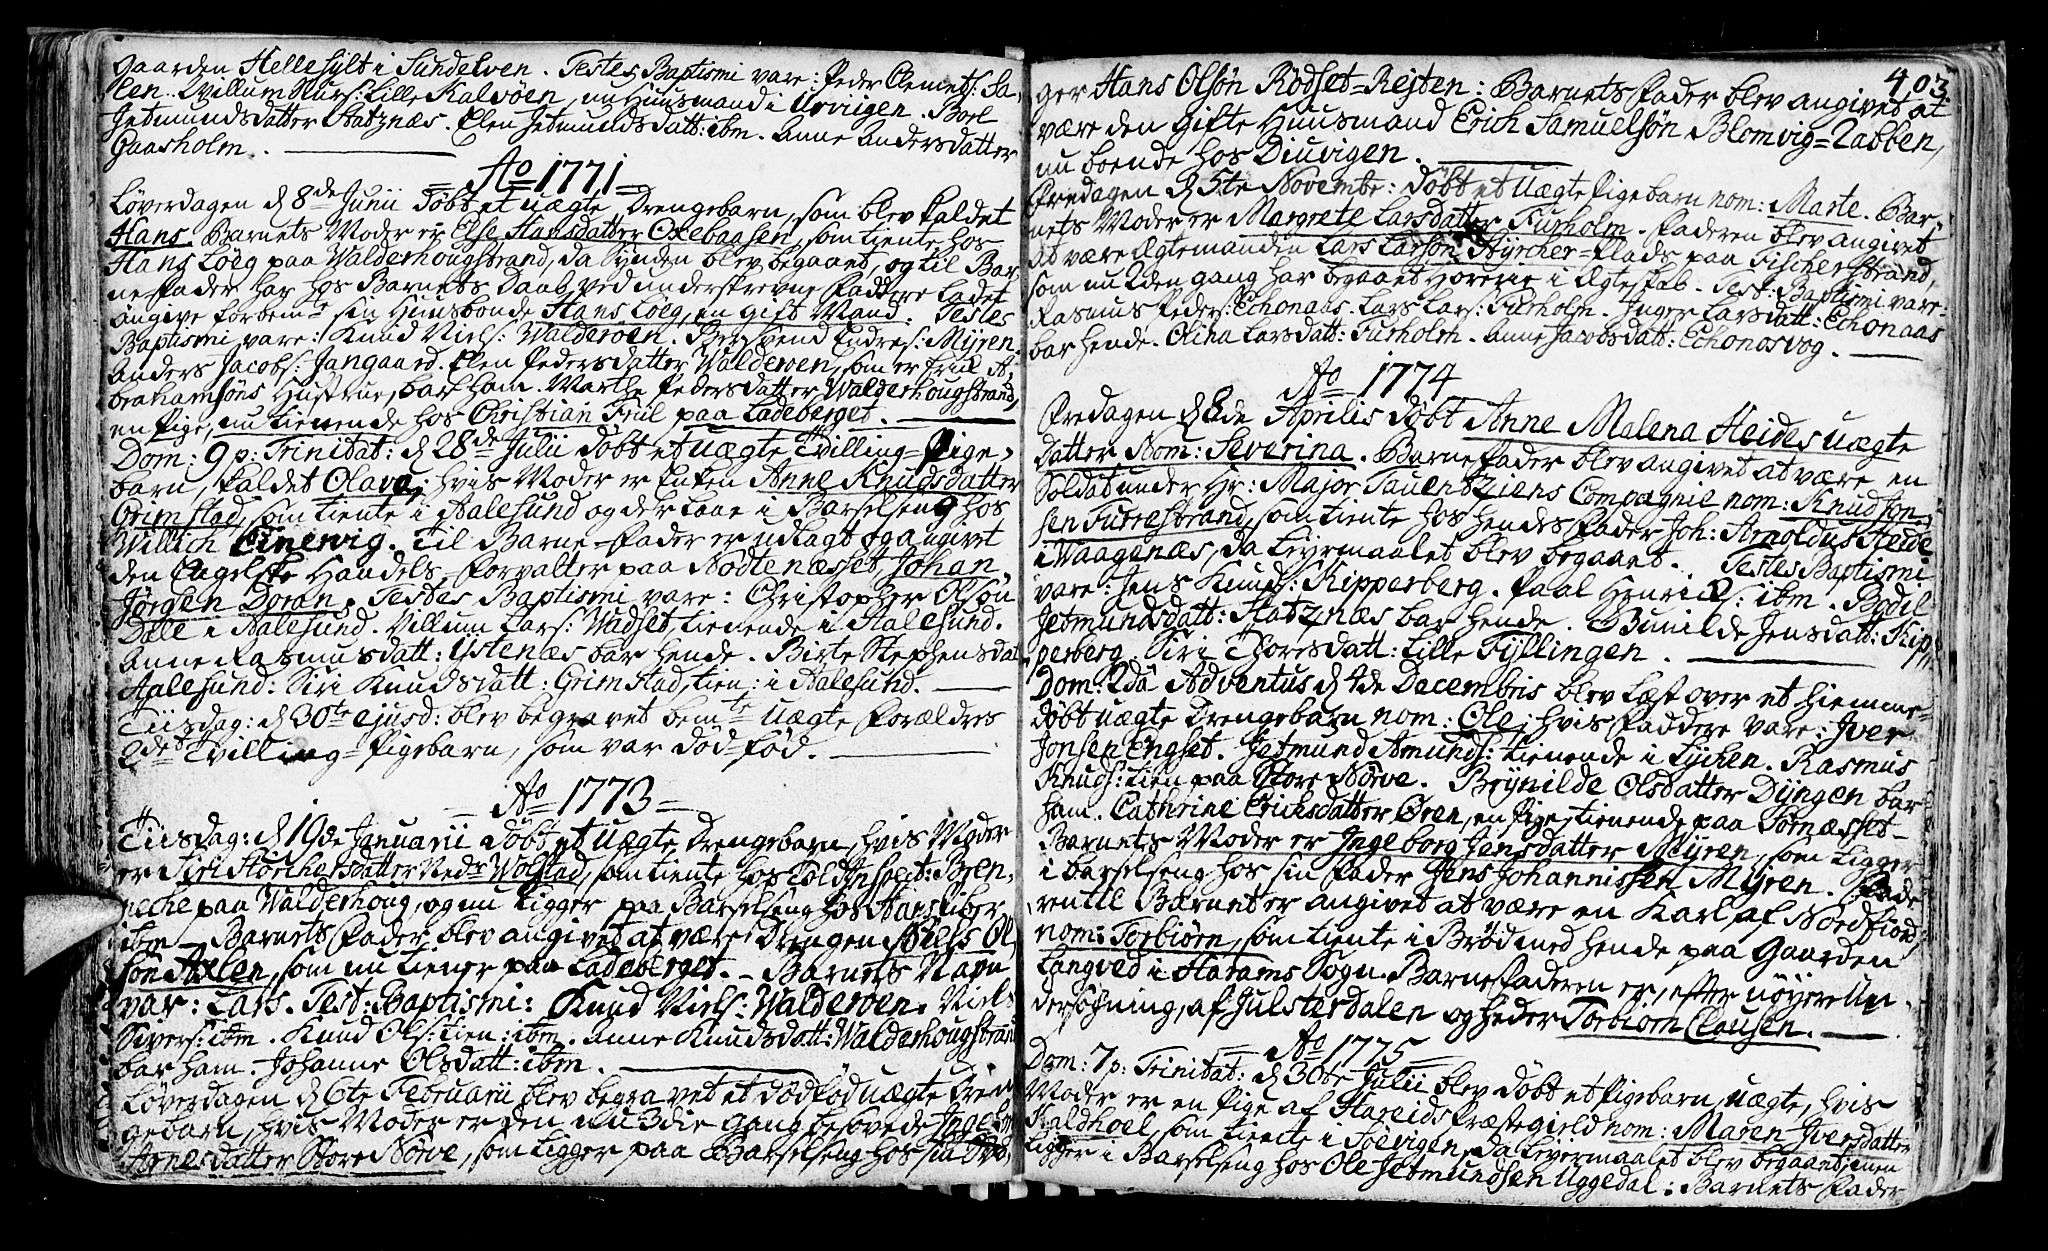 gaarden Hellesylt i Sundelven. Testes Baptismi vare: Peder Clemets: Sa-
len. Willum Lars: Lille Kalvøen, nu Huusmand i Urvigen. Boel
Jetmundsdatter Statznæs. Elen Jetmundsdatt: ibm. Anne Andersdatter
Gaasholm.
Ao 1771
Løverdagen d 8de Junii døbt et uægte Drengebarn, som blev kaldet
Hans. Barnets Moder er Else Hansdatter Oxebaasen, som tiente hos
Hans Løeg paa Walderhougstrand, da Synden blev begaaet, og til Bar-
ne-Fader har hos Barnets Daab ved understrevne Faddere ladet
angive forbemte sin Huusbonde Hans Løeg, en gift Mand. Testes
Baptismi vare: Knud Niels: Walderøen. Svend Endres: Myren.
Anders Jacobs: Jangaard. Elen Pedersdatter Walderøen, som er Friik A-
brahamsøns Hustrue, bar ham. Marthe Pedersdatter Walderhougstrand,
en Pige, nu tienende hos Christian Friil paa Ladeberget.
Dom: 9 p: Trinitat: d 28de Julii døbt et uægte Tvilling-Pige-
barn, kaldet Olava, hvis Moder er Enken Anne Knudsdatter
Grimstad, som tiente i Aalesund og der laae i Barselseng hos
Willich Einervig. Til Barne-Fader er udlagt og angivet
den Engelske Handels-Forvalter paa Nødtenæsset Johan
Jørgen Doran. Testes Baptismi vare: Christopher Olsøn
Dale i Aalesund. Villum Lars: Wadset, tienende i Aalesund.
Anne Rasmusdatt: Ystenæs bar hende. Birte Stephensdat
Aalesund: Siri Knudsdatt: Grimstad, tien: i Aalesund.
Tiisdag: d 30te ejusd: blev begravet bemte uægte Forældres
2det Tvilling-Pigebarn, som var død-fød.
Ao 1773
Tiisdag: d 19de Januarii døbt et uægte Drengebarn, hvis Moder
er Siri Størchersdatter Nedr Wolstad, som tiente hos Toldinspect: Bøen-
neche paa Walderhoug, og nu ligger paa Barselseng hos Hans Iber
ibm. Barnets Fader blev angivet at være Drengen Niels Ol-
søn Axlen, som nu tiener paa Ladeberget. Barnets Navn
var: Lars. Test: Baptismi: Knud Niels: Walderøen. Niels
Sivers: ibm. Knud Ols: tien: ibm. Anne Knudsdatt: Walderhougstrand
bar ham. Johanne Olsdatt: ibm.
Løverdagen d 6te Februarii blev begravet et dødfød uægte Dren-
gebarn, hvis Moder er den nu 3die gang besovede Ingebor
Arnesdatter Store Nørve, som ligger paa Barselseng hos sin Svo-
403
ger Hans Olsøn Rødset-Rejten: Barnets Fader blev angivet at
være den gifte Huusmand Erich Samuelsøn Blomvig-Labben,
nu boende hos Diuvigen.
Fredagen d 5te Novembr: døbt et uægte Pigebarn nom: Marte. Bar-
nets Moder er Margrete Larsdatter Furholm. Faderen blev angivet
at være Ægtemanden Lars Larsøn Styrcher-Plads paa Fischerstrand,
som nu 2den gang har begaaet Horerie i Ægteskab. Test: Baptismi vare:
Rasmus Peders: Echonaas. Lars Lars: Furholm. Inger Larsdatt: Echonaas
bar hende. Olina Larsdatt: Furholm. Anne Jacobsdatt: Echonosvog.
Ao 1774
Fredagen d 8de Aprilis døbt Anne Malena Heides uægte
datter Nom: Severina. Barne Fader blev angivet at være en
Soldat under Hr: Major Tauentziens Compagnie nom: Knud Jon-
sen Furrestrand, som tiente hos hendes Fader Joh: Arnoldus Heide
i Waagenæs, da Leyermaalet blev begaaet. Testes Baptismi
vare: Jens Knuds: Kipperberg. Paal Henrichs: ibm. Bodil
Jetmundsdatt: Statznæs bar hende. Bunilde Jensdatt: Kip-
perberg. Siri Thoresdatt: Lille Tyllingen.
Dom: 2da Adventus d 4de Decembris blev læst over et hiemme-
døbt uægte Drengebarn nom: Ole, hvis Faddere vare: Iver
Jonsen Engset. Jetmund Amunds: tienende i Lychen. Rasmus
Knuds: tien paa Store Nørve. Brynilde Olsdatter Dyngen bar
ham. Cathrine Erichsdatter Øren, en Pige tienende paa Sørnæsset.
Barnets Moder er Ingeborg Jensdatter Myren, som ligger
i Barselseng hos sin Fader Jens Johannissen Myren. Fade-
ren til Barnet er angivet at være en Karl af Nordfiord
nom: Torbiørn, som tiente i Brød med hende paa Gaarden
Langved i Harams Sogn. Barne Faderen er, efter nøyere Un-
dersøgning, af Julsterdalen og heder Torbiørn Clausen.
Ao 1775
Dom: 7 p: Trinitat: d 30te Julii blev døbt et Pigebarn, uægte, hvis
Moder er en Pige af Hareids Præstegield nom: Maren Iversdatter
Kaldhoel, som tiente i Søevigen, da Leyermaalet blev begaaet, men
ligger i Barselseng hos Ole Jetmundsen Uggedal: Barnets Fader